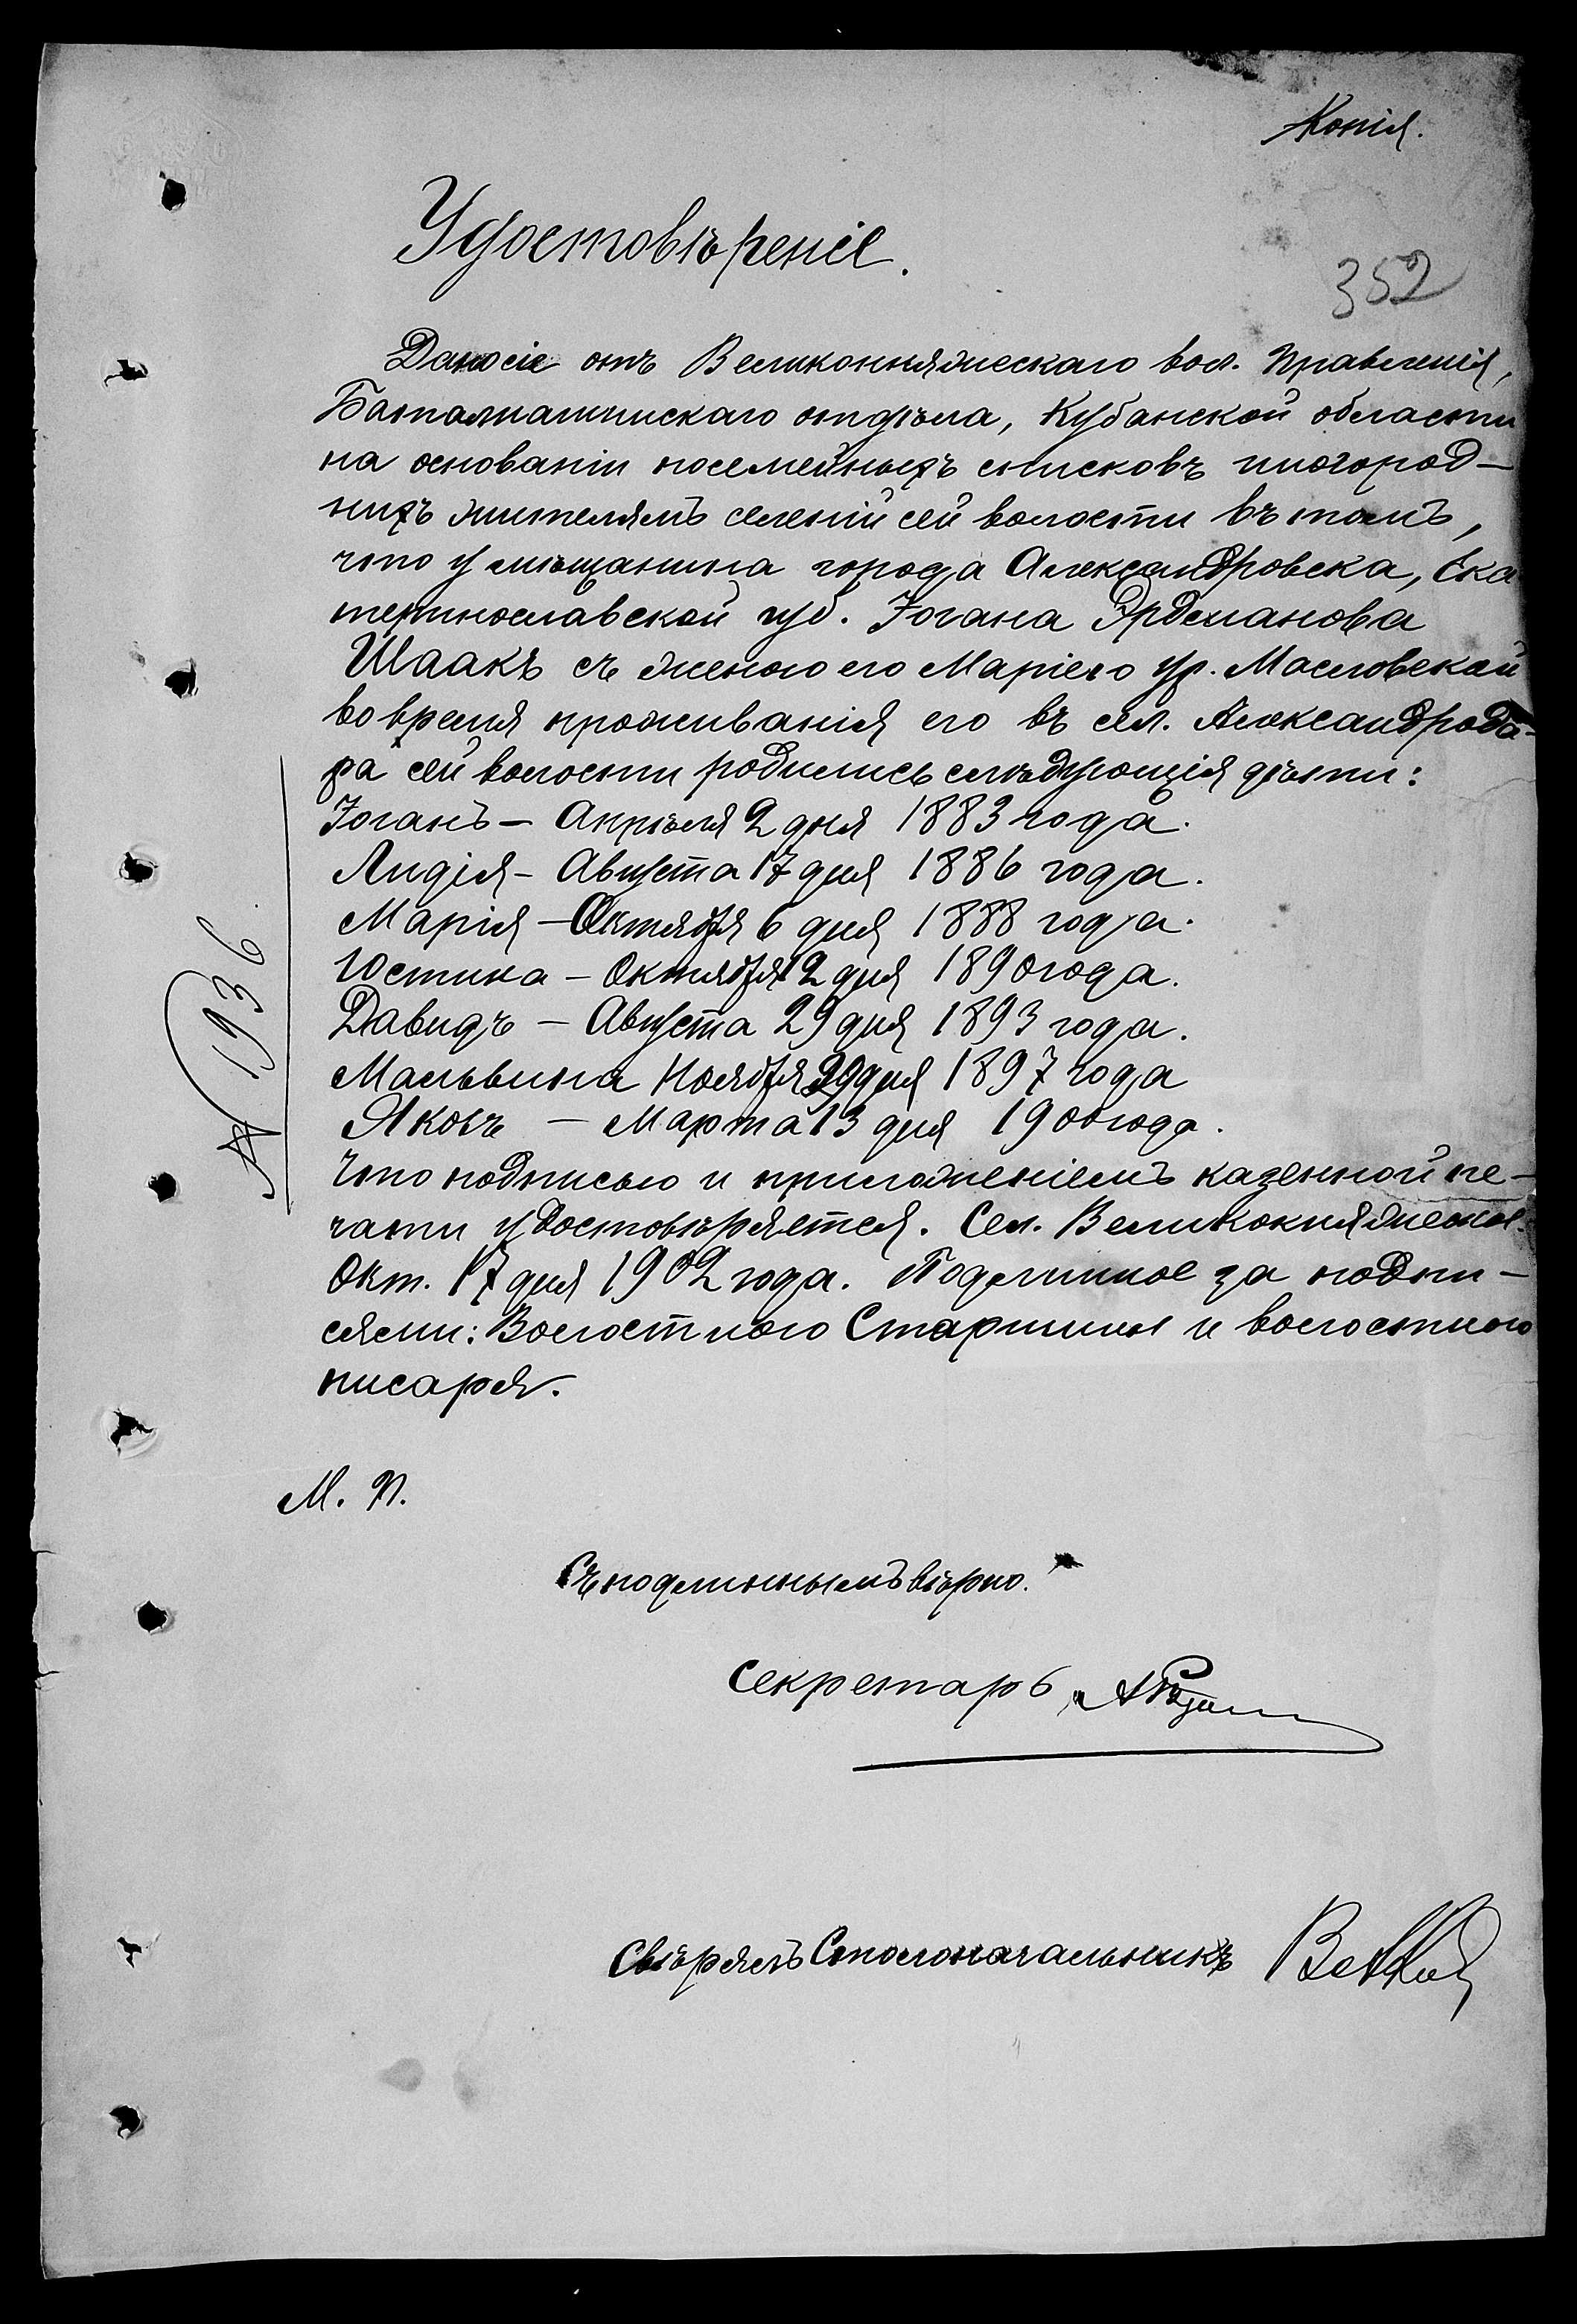 Копія.
Удостовѣреніе.
352
Дано сіе отъ Великокняжескаго вол. Правленія,
Баталпашинскаго отдѣла, Кубанской области
на основаніи посемейныхъ списковъ иногород-
нихъ жителямъ селеній сей волости въ томъ,
что у мѣщанина города Александровска, Ека
теринославской губ. Іогана Эрдманова
Шаакъ съ женою его Маріею ур. Масловской
во время проживанія его въ сел. Александрода-
ра сей волости родились слѣдующія дѣти:
Іоганъ – Апрѣля 2 дня 1883 года.
Лидія – Августа 17 дня 1886 года.
Марія – Октября 6 дня 1888 года.
Юстина – Октября 12 дня 1890 года.
Давидъ – Августа 29 дня 1893 года.
Мальвина Ноября 29 дня 1897 года
Яковъ – Марта 13 дня 1900 года.
Что подписью и приложеніемъ казенной пе-
чати удостовѣряется. Сел. Великокняжеское
Окт. 17 дня 1902 года. Подлинное за подпи-
сями: Волостного Старшины и волостного
писаря.
№ 1936.
М. П.
Съ подлиннымъ вѣрно.
Секретарь
Свѣрялъ Столоначальникъ